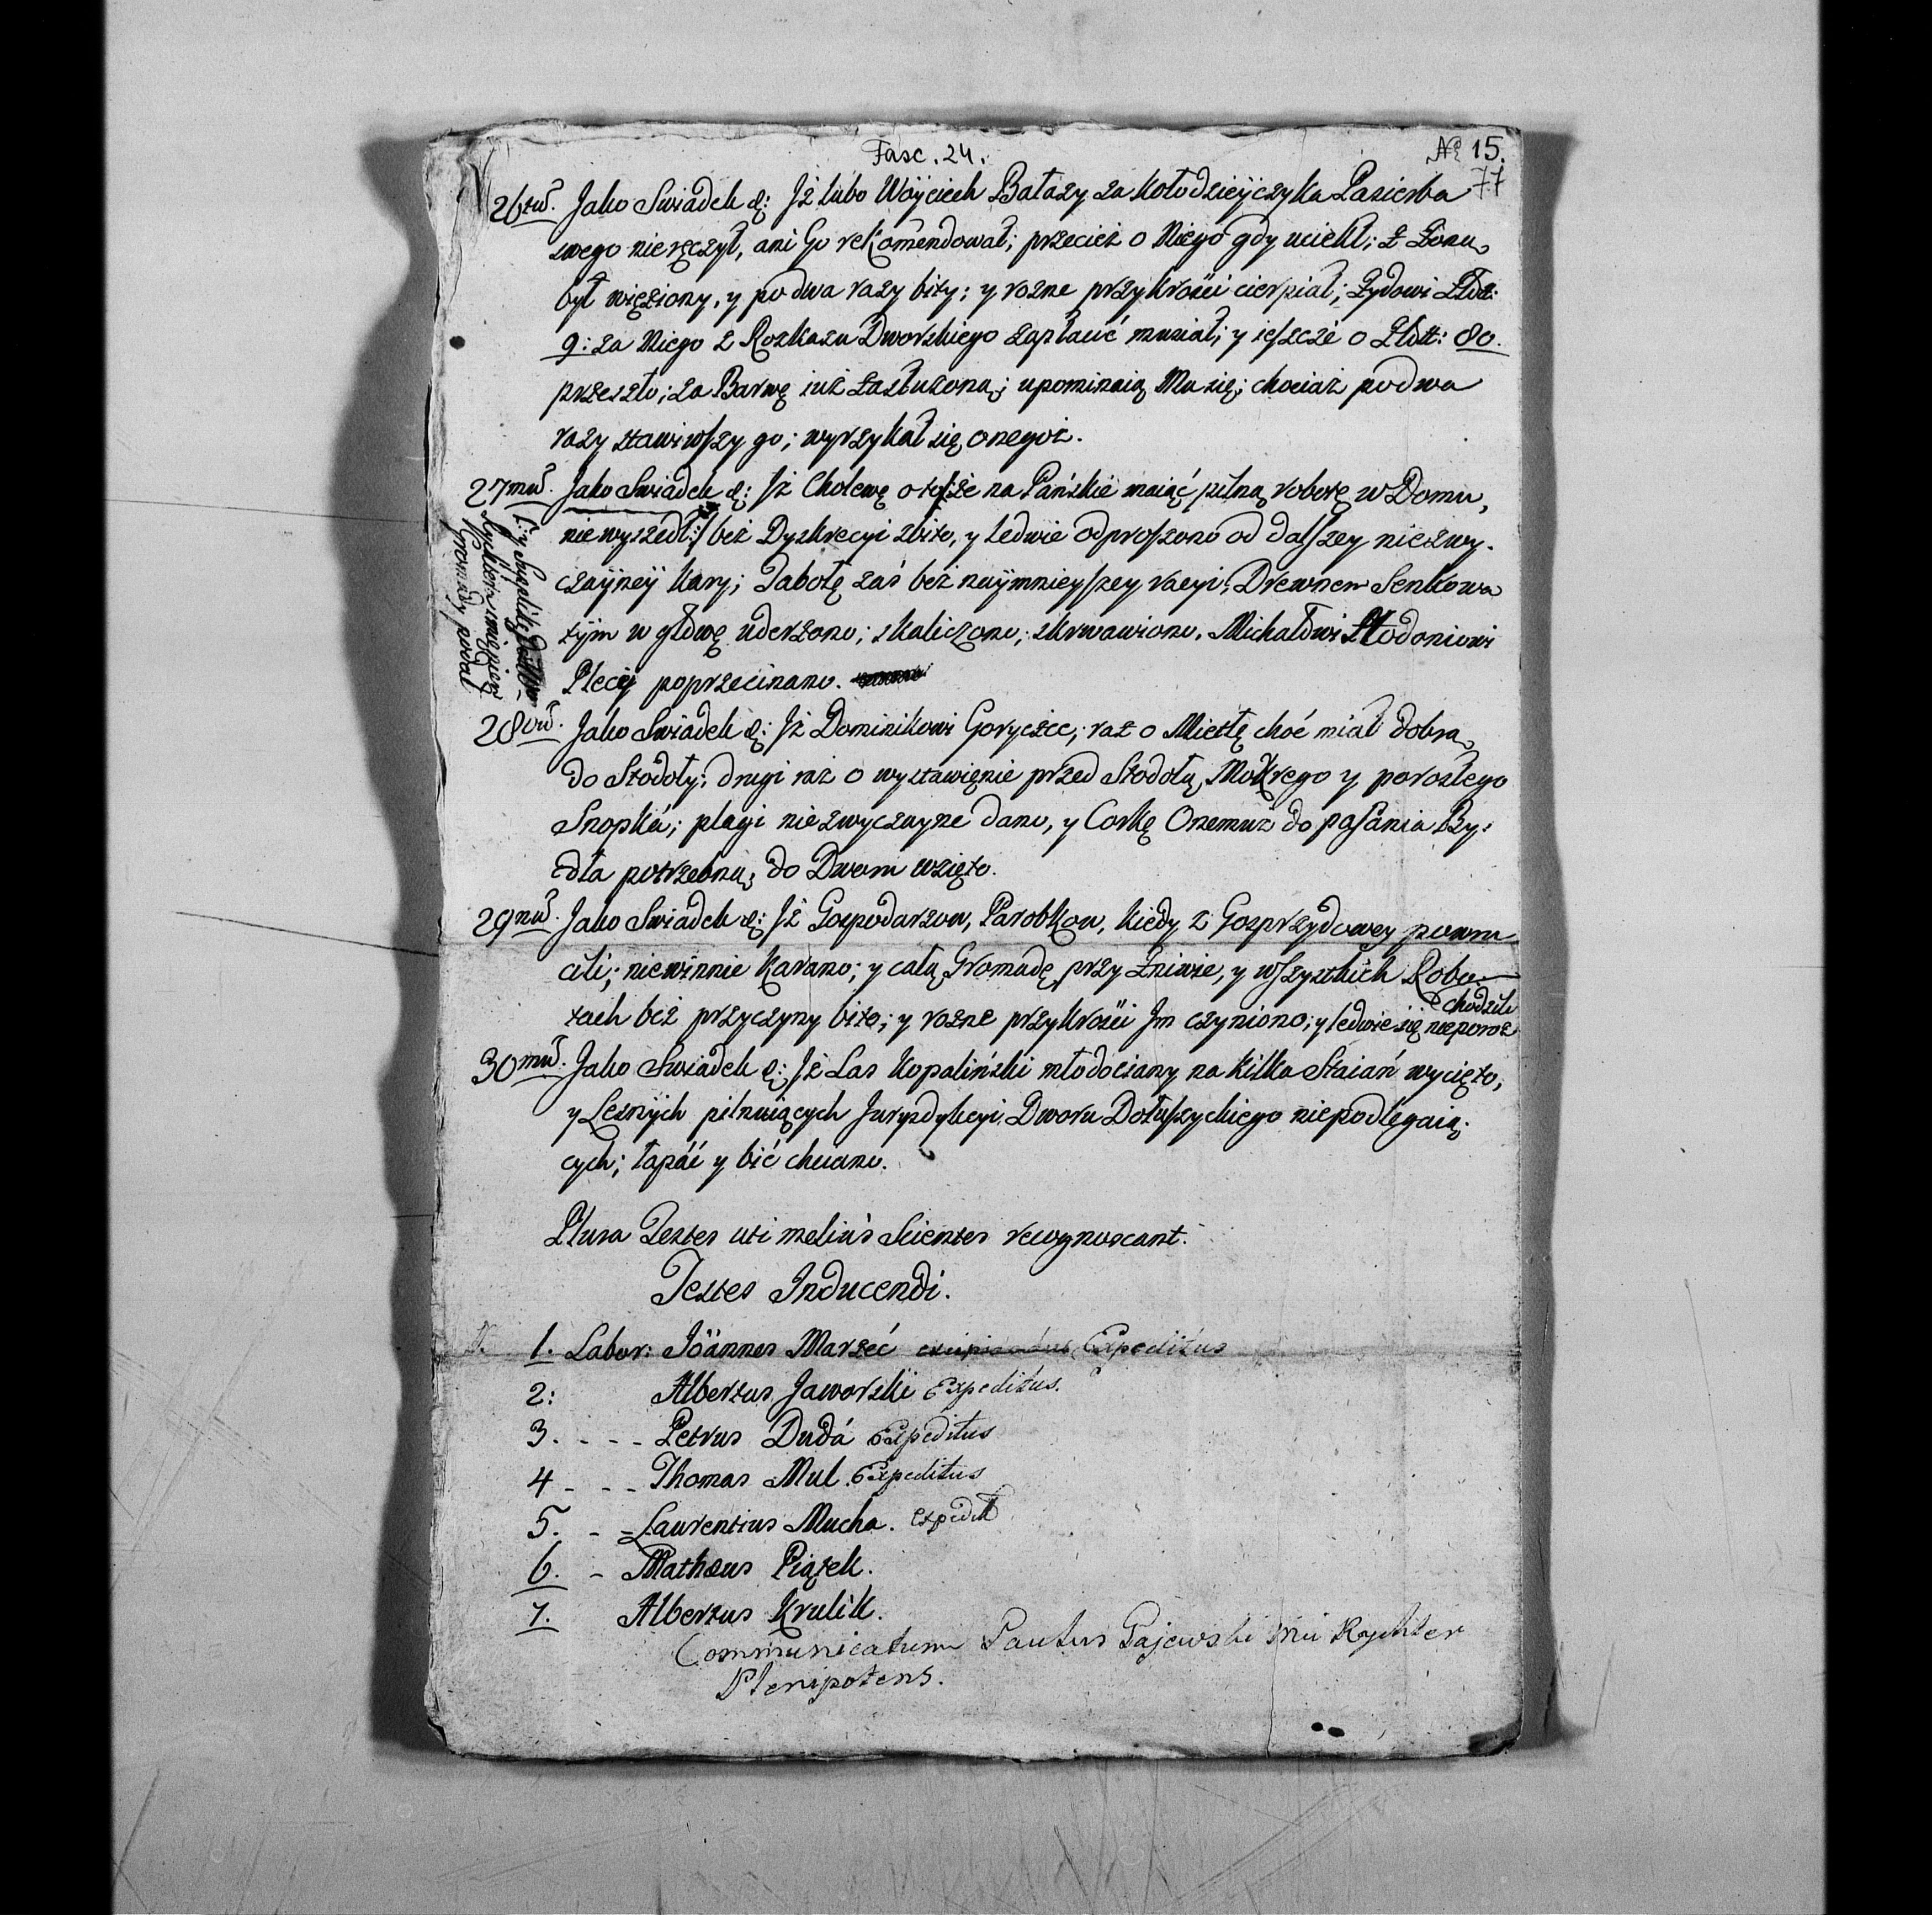 Fasc. 24.
№ 15.
77
26tű. Jako Swiadek &: Jż lubo Woyciech Bałazy za Kołodzieyczyka Pasierba
swego nieręczył, ani Go rekomendował; przecież o Niego gdy uciekł; z Żoną
był więziony, y po dwa razy bity; y rozne przykrości cierpiał; Żydowi Złtt:
9: za Niego z Rozkazu Dworskiego zapłacić musiał; y ieszcze o Złtt: 80.
przeszło; za Barwę iuż zasłużoną; upominaią Mu się; chociaż po dwa
razy stawiwszy go; wyrzykał się onegoż.
27mű. Jako Swiadek &: Jż Cholewę o to że na Pańskie maiąć pilną robotę w Domu,
nie wyszedł:/ bez Dyskrecyi zbito, y ledwie odproszono od dalszey niezwy-
czayney kary; Jabołę zaś bez naymnieyszey racyi, Drewnem Senkowa
tym w głowę uderzono; skaliczono; skrwawiono. Michałowi Młodoniowi
Plecy poprzecinano.
/: y Suplikę
imieniem
Gromady podał
28vű. Jako Swiadek &: Jż Dominikowi Goryczce; raz o Mietłę choć miał dobrą
do Stodoły; drugi raz o wystawienie przed Stodołą, Mokrego y porosłego
Snopká; plagi niezwyczayne dano, y Corkę Onemuż do pasania By-
dła potrzebną, do Dworu wzięto.
29nű. Jako Swiadek &: Jż Gospodarzow, Parobkow, kiedy z Gosprzydowey powra
cili; niewinnie karano; y całą Gromadę przy Żniwie, y wszystkich Robo-
tach bez przyczyny bito; y rozne przykrości Jm czyniono; y ledwie się nieporoz
chodzili
30mű. Jako Swiadek &: Jż Las Kopaliński młodociany na kilka Staiań wycięto,
y Lesnych pilnuiących Juryzdykcyi Dworu Dołuszyckiego niepodlegaią-
cych; łapáć y bić chciano.
Plura Testes uti melius Scientes recognoscant.
Testes Inducendi.
1. Labor: Joannes Marzéć Expeditus
2: Albertus Jaworski Expeditus.
3. - - - Petrus Dudá Expeditus
4 - - - Thomas Mul. Expeditus
5. - - Laurentius Mucha. Expedit
6. - Mathæus Piątek.
7. Albertus Krulik.
Communicatum Paulus Gajewski Rychter
Plenipotens.